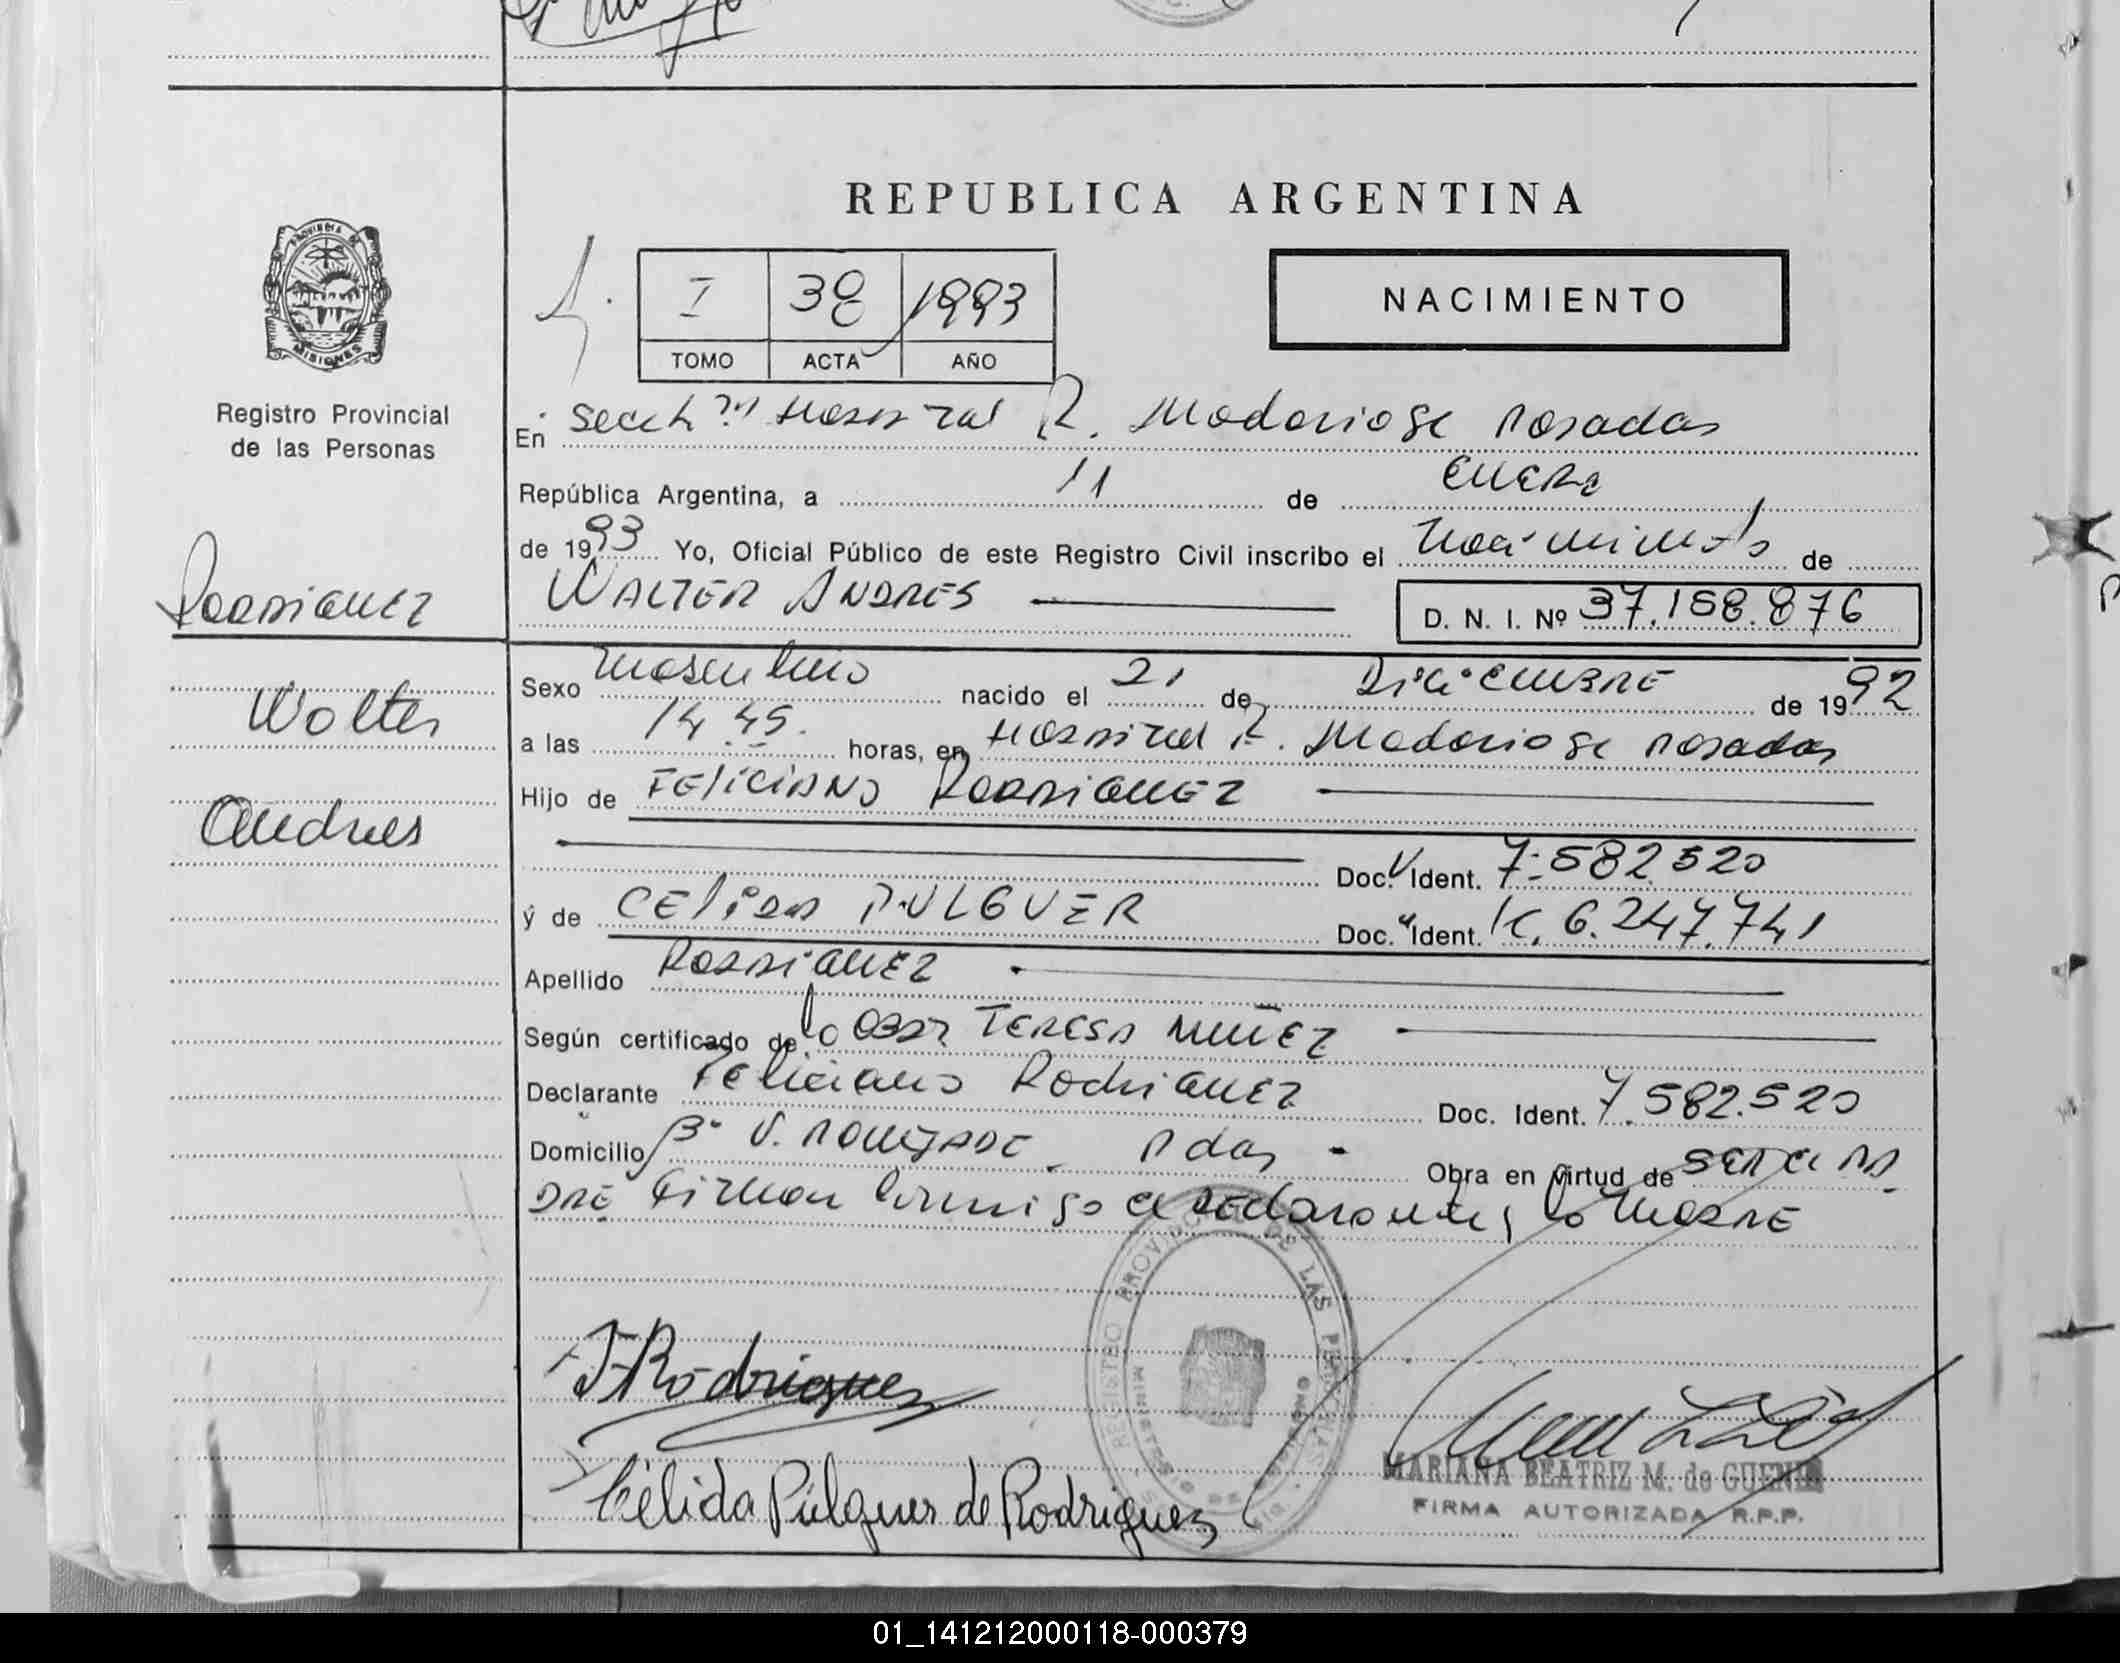 REPUBLICA ARGENTINA
PROVINCIA DE
MISIONES
Registro Provincial
de las Personas
I 38 1993
TOMO ACTA AÑO
NACIMIENTO
En Hospital R. Madariaga Posadas
República Argentina, a 11 de ENERO
de 1993 Yo, Oficial Público de este Registro Civil inscribo el Nacimiento de
WALTER ANDRES D. N. I. Nº 37.158.876
Rodriguez
Walter
Andres
Sexo Masculino nacido el 21 de Diciembre de 1992
a las 14.45. horas, en Hospital R. Madariaga Posadas
Hijo de FELICIANO RODRIGUEZ
Doc. Ident. 7.582.520
y de CELIDA PULGUER Doc. Ident. 6.247.741
Apellido RODRIGUEZ
Según certificado de la Obst TERESA NUÑEZ
Declarante Feliciano Rodriguez Doc. Ident. 7.582.520
Domicilio Bº V. Pdas - Obra en virtud de SER EL PA-
DRE Firman conmigo el declarante y la MADRE
REGISTRO PROVINCIAL DE LAS PERSONAS
F Rodriguez
Célida Pulguer de Rodriguez
MARIANA BEATRIZ M. de
FIRMA AUTORIZADA R.P.P.
01_141212000118-000379